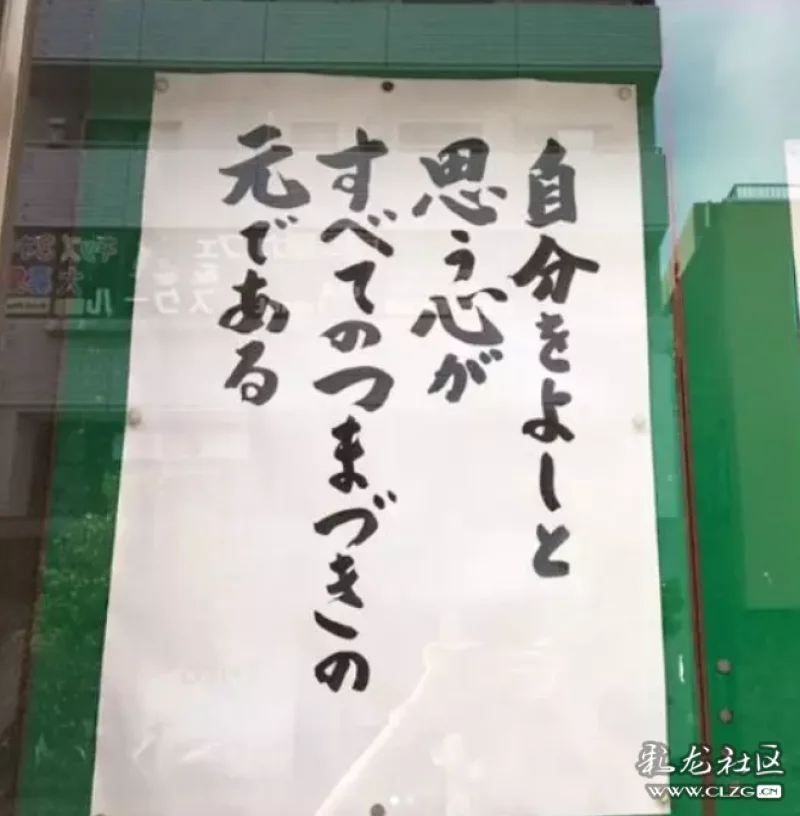 自分をよしと
思う心が
すべてのつまづきの
元である
彩龙社区
WWW.CLZG.CN